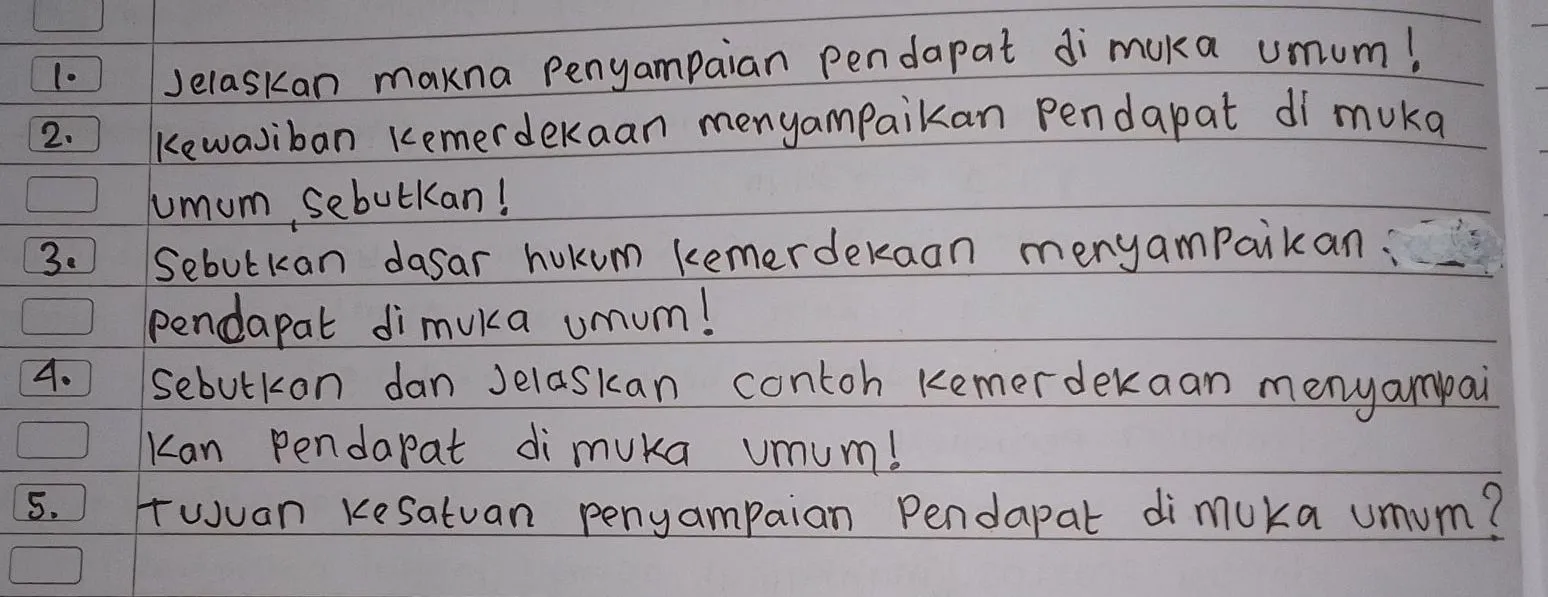 1. Jelaskan makna Penyampaian pendapat di muka umum!
2. Kewajiban kemerdekaan menyampaikan Pendapat di muka
umum, sebutkan!
3. Sebutkan dasar hukum kemerdekaan menyampaikan
pendapat di muka umum!
4. Sebutkan dan Jelaskan contoh kemerdekaan menyampai
kan pendapat di muka umum!
5. tujuan kesatuan penyampaian Pendapat di muka umum?